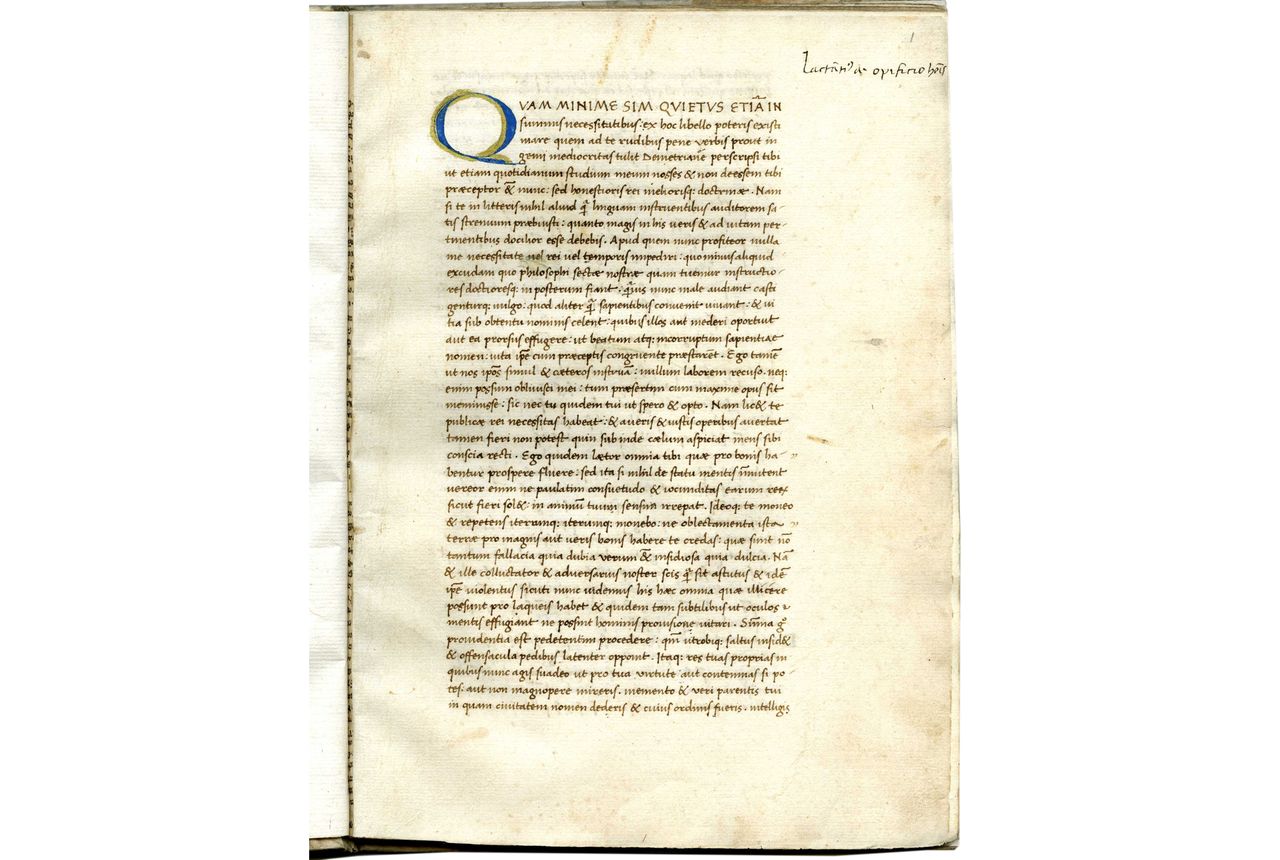 1
Lactāti⁹ de opificio hoīs
QVAM MINIME SIM QVIETVS ETIĀ IN
summis necessitatibus: ex hoc libello poteris existi
mare quem ad te rudibus pene verbis prout in
genii mediocritas tulit Demetriane perscripsi tibi
ut etiam quotidianum studium meum nosses & non deessem tibi
præceptor & nunc: sed honestioris rei meliorisq; doctrinæ. Nam
si te in litteris nihil aliud q̄ linguam instruentibus auditorem sa-
tis strenuum præbuisti: quanto magis in his veris & ad uitam per-
tinentibus docilior esse debebis. Apud quem nunc profiteor nulla
me necessitate uel rei uel temporis impediri: quominus aliquid
excudam quo philosophi sectæ nostræ quam tuemur instructio-
res doctioresq; in posterum fiant: q̄uis nunc male audiant casti
genturq; uulgo: quod aliter q̄ sapientibus convenit uiuant: & ui
tia sub obtentu nominis celent: quibus illos aut mederi oportuit
aut ea prorsus effugere: ut beatum atq; incorruptum sapientiæ
nomen: uita ipsa cum præceptis congruente præstarēt. Ego tamē
ut nos ipōs simul & cæteros instruā: nullum laborem recuso. neq:
enim possum obliuisci mei: tum præsertim cum maxime opus sit
meminisse: sic nec tu quidem tui ut spero & opto. Nam lic& te
publicæ rei necessitas habeat: & a ueris & iustis operibus auertat
tamen fieri non potest quin subinde cælum aspiciat mens sibi
conscia recti. Ego quidem lætor omnia tibi quæ pro bonis ha-
bentur prospere fluere: sed ita si nihil de statu mentis īmutent
vereor enim ne paulatim consuetudo & iocunditas earum re&
sicut fieri sol&: in animū tuum sensim irrepat. Ideoq; te moneo
& repetens iterumq; iterumq; monebo: ne oblectamenta ista
terræ pro magnis aut ueris bonis habere te credas: quæ sint nō
tantum fallacia quia dubia verum & insidiosa quia dulcia. Nā
& ille colluctator & adversarius noster scis q̄ sit astutus & idē
ipē uiolentus sicuti nunc uidemus his hæc omnia quæ illicere
possunt pro laqueis habet & quidem tam subtilibus ut oculos
mentis effugiant ne possint hominis provisione uitari. Sūma g°
providentia est pedetentim procedere: qm̄ utrobiq; saltus insid&
& offensacula pedibus latenter opponit. Itaq: res tuas propras in
quibus nunc agis suadeo ut pro tua virtute aut contemnas si po-
tes: aut non magnopere mireris. memento & veri parentis tui
in quam civitatem nomen dederis & cuius ordinis fueris. intelligis